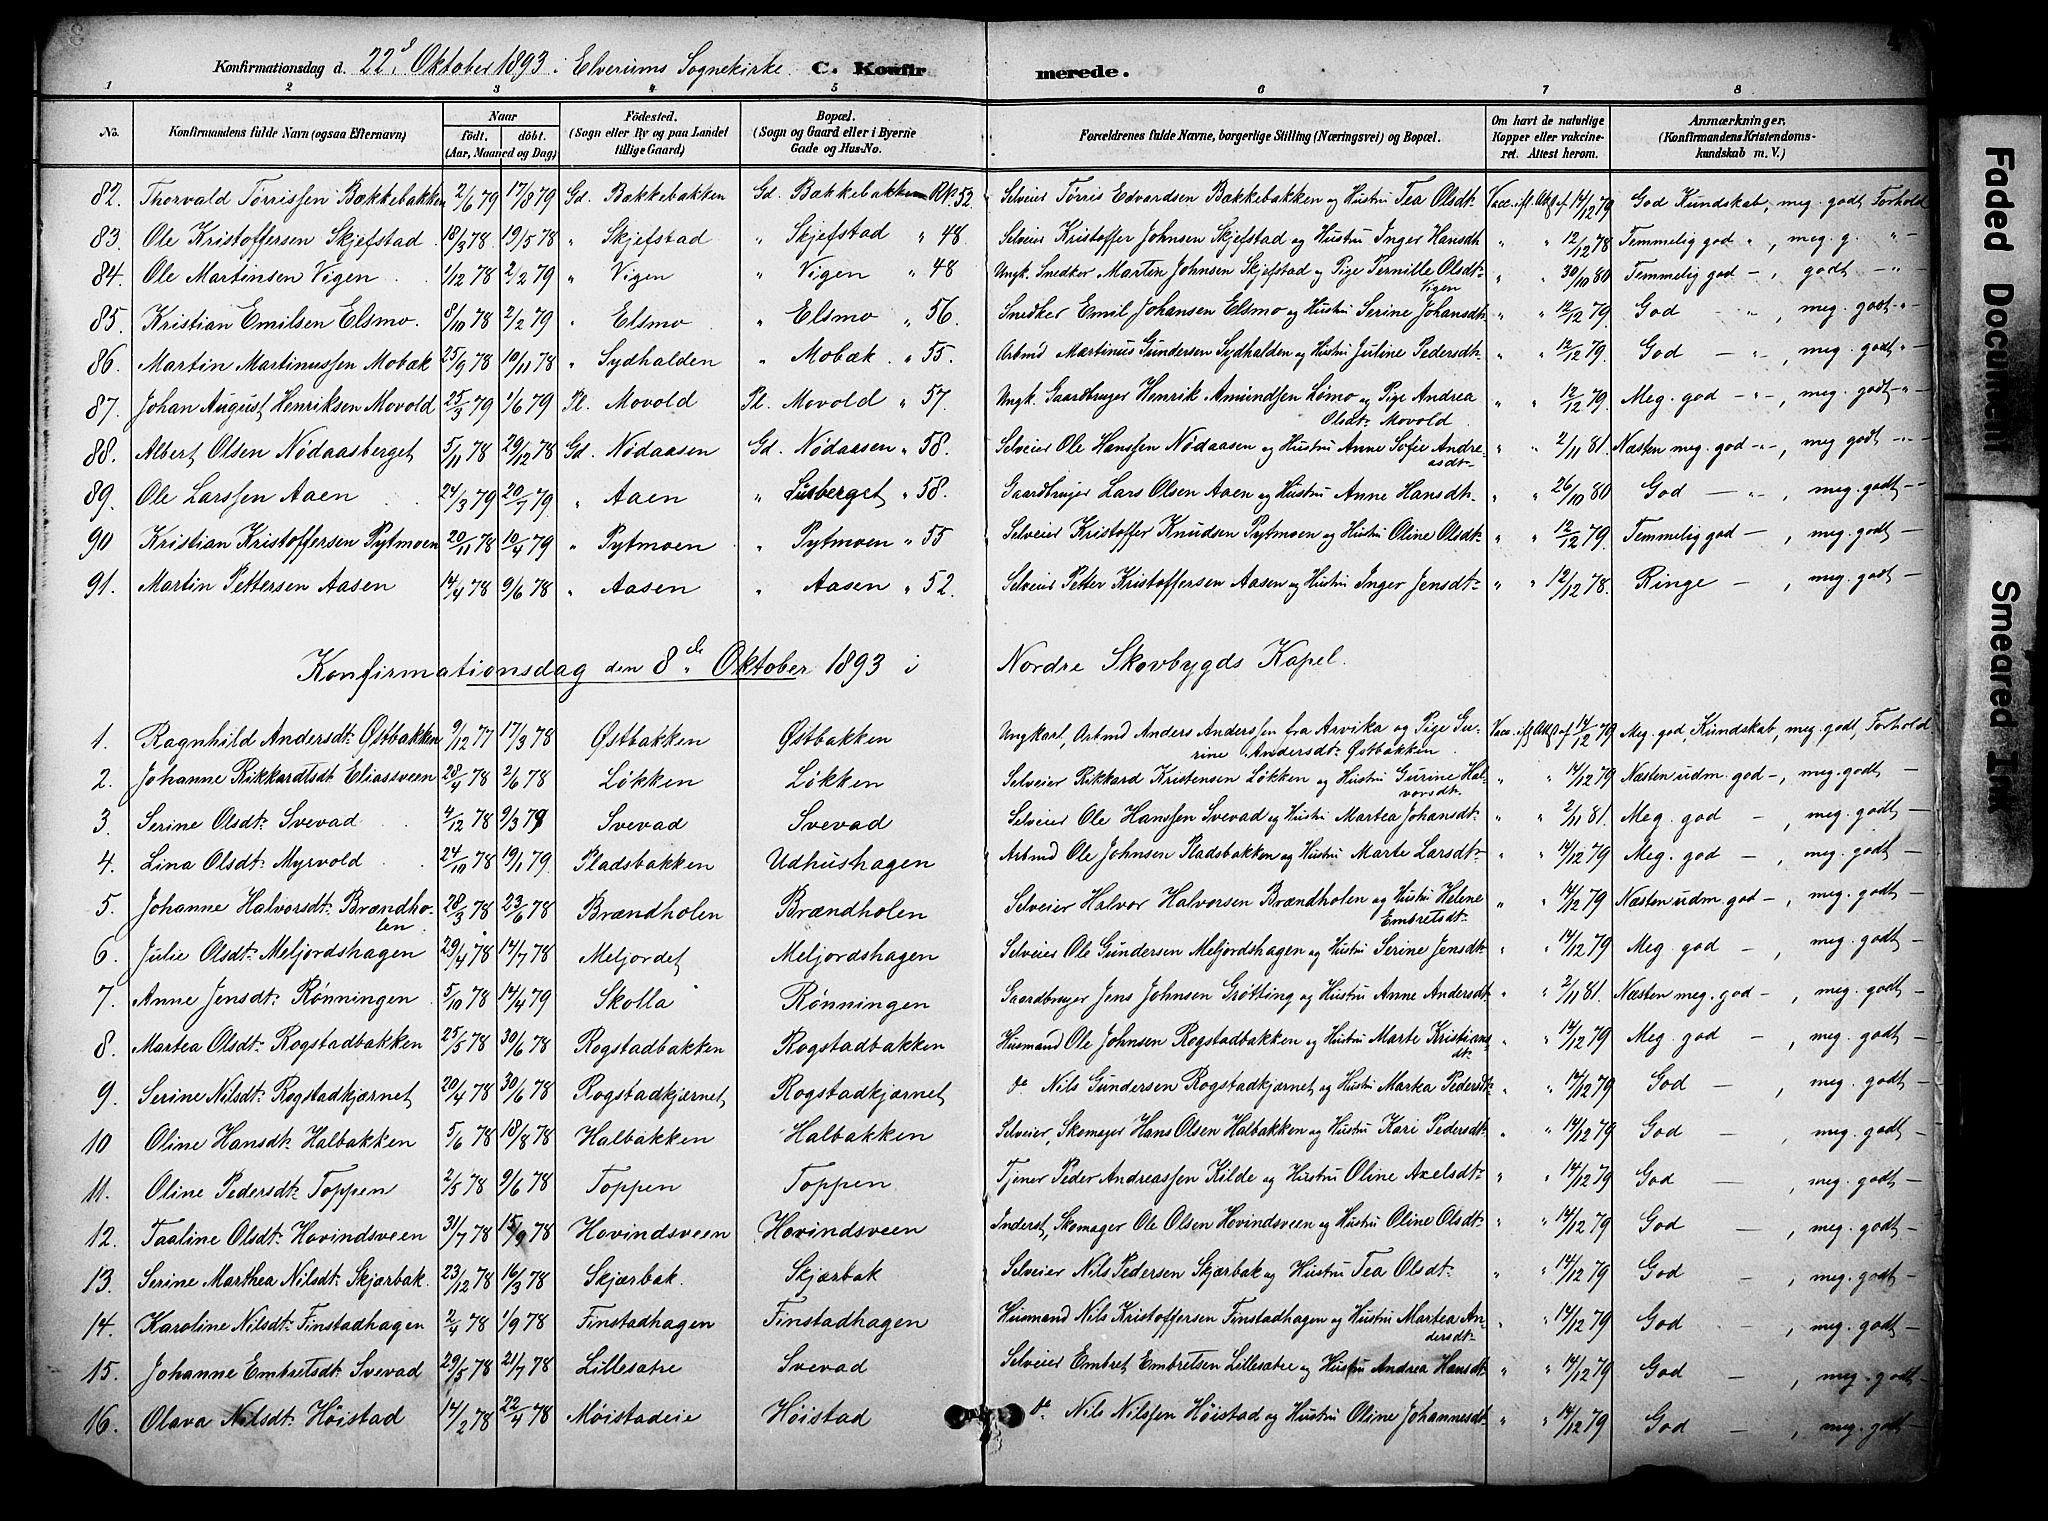 Konfirmationsdag d. 22de Oktober 1893 i Elverums Sognekirke. C. Konfirmerede.
1 2 3 4 5 6 7 8
No. Konfirmandens fulde Navn (ogsaa Efternavn) Naar födt. döbt. (Aar, Maaned og Dag) Födested. (Sogn eller By og paa Landet tillige Gaard) Bopæl. (Sogn og Gaard eller i Byerne Gade og Hus-No. Forældrenes fulde Navne, borgerlige Stilling (Næringsvei) og Bopæl. Om havt de naturlige Kopper eller vakcineret. Attest herom. Anmærkninger. (Konfirmandens Kristendomskundskab m. V.)
82. Thorvald Torrissen Bækkebakken 2/6 79 17/8 79 Gd. Bækkebakken Gd. Bækkebakken RN. 52. Selveier Tørris Edvardsen Bækkebakken og Hustru Tea Olsdt. Vacc. ifl. Att. af 14/12 79 God Kundskab, meg. godt Forhold
83. Ole Kristoffersen Skjefstad 18/3 78 19/5 78 " Skjefstad " Skjefstad " 48 Selveier Kristoffer Johnsen Skjefstad og Hustru Inger Hansdt. " " 12/12 78 Temmelig god " , meg. g. "
84. Ole Martinsen Vigen 1/12 78 2/2 79 " Vigen " Vigen " 48 Ungk. Snedker Martin Johnsen Skjefstad og Pige Pernille Olsdt. Vigen " " 30/10 80 Temmelig god - , godt - "
85. Kristian Emilsen Elsmo. 8/10 78 2/2 79 " Elsmo " Elsmo " 56. Snedker Emil Johansen Elsmo og Hustru Serine Johansdt. " " 12/12 79. God - " , meg. godt - " -
86. Martin Martinussen Mobæk 25/9 78 10/11 78 " Sydhalden " Mobæk. " 55. Arbmd Martinus Gundersen Sydhalden og Hustru Juline Pedersdt. " " 12/12 79. God - " - , meg. godt " -
87. Johan August Henriksen Movold 25/3 79 1/6 79 Pl. Movold Pl. Movold " 57. Ungk. Gaardbruger Henrik Amundsen Lømo og Pige Andrea Olsdt. Movold " " 12/12 79. Meg. god - " - , meg. godt - " -
88. Albert Olsen Nødaasberget 5/11 78 29/12 78 Gd. Nødaasen Gd. Nødaasen " 58. Selveier Ole Hanssen Nødaasen og Hustru Anne Sofie Andreasdt. " " 2/11 81. Næsten meg. god - " - , meg godt - " -
89. Ole Larssen Aaen 24/3 79 20/7 79 " Aaen " Lisberget " 58. Gaardbruger Lars Olsen Aaen og Hustru Anne Hansdt. " " 26/10 80 God - " - , meg. godt -
90 Kristian Kristoffersen Pytmoen 20/11 78 10/4 79 " Pytmoen " Pytmoen " 55 Selveier Kristoffer Knudsen Pytmoen og Hustru Oline Olsdt. " " 12/12 79. Temmelig god - , meg. godt -
91. Martin Pettersen Aasen 14/4 78 9/6 78 " Aasen " Aasen " 52. Selveier Petter Kristoffersen Aasen og Hustru Inger Jensdt. " " 12/12 78. Ringe - , meg. godt -
Konfirmationsdag den 8de Oktober 1893 i Nordre Skovbygds Kapel.
1. Ragnhild Andersdt. Østbakken 9/12 77 17/3 78 Østbakken Østbakken Ungkarl, Arbmd Anders Anderssen fra Arvika og Pige Gurine Andersdt. Østbakken Vacc. ifl. Att. af 14/12 79 Meg. god, Kundskab, meg. godt, Forhold
2. Johanne Rikkardtsdt Eliassveen 28/4 78 2/6 78 Løkken Løkken Selveier Rikkard Kristensen Løkken og Hustru Gurine Halvorsdt. " " 14/12 79 Næsten udm. god -, meg. godt -
3. Serine Olsdt. Svevad 4/12 78 9/3 79 Svevad Svevad Selveier Ole Hanssen Svevad og Hustru Martea Johansdt. " " 2/11 81. Meg. god - , meg. godt -
4. Lina Olsdt. Myrvold 24/10 78 19/1 79. Pladsbakken Udhushagen Arbmd Ole Johnsen Pladsbakken og Hustru Marte Larsdt. " " 14/12 79 Meg. god - , meg. godt -
5. Johanne Halvorsdt. Brændholen 28/3 78 23/6 78 Brændholen Brændholen Selveier Halvor Halvorsen Brændholen og Hustru Helene Embretsdt. " " 14/12 79 Næsten udm. god -, meg. godt -
6. Julie Olsdt. Meljordshagen 29/4 78 14/7 78 Meljordet Meljordshagen Selveier Ole Gundersen Meljordshagen og Hustru Serine Jensdt " " 14/12 79 Meg. god - , meg. godt -
7. Anne Jensdt. Rønningen 5/10 78 14/4 79 Skolla Rønningen Gaardbruger Jens Johnsen Grøtting og Hustru Anne Andersdt. " " 2/11 81. Næsten meg. god - , meg. godt -
8. Martea Olsdt. Rogstadbakken 25/5 78 30/6 78 Rogstadbakken Rogstadbakken Husmand Ole Johnsen Rogstadbakken og Hustru Marte Kristiansdt. " " 14/12 79 Meg. god - , meg. godt -
9. Serine Nilsdt. Rogstadkjærnet 20/4 78 30/6 78 Rogstadkjærnet Rogstadkjærnet do Nils Gundersen Rogstadkjærnet og Hustru Marka Pedersdt. " " 14/12 79 God - , meg. godt -
10 Oline Hansdt. Halbakken 5/6 78 18/8 78 Halbakken Halbakken Selveier, Skomager Hans Olsen Halbakken og Hustru Kari Pedersdt. " " 14/12 79 God - , meg. godt -
11. Oline Pedersdt. Toppen 2/5 78 9/6 78 Toppen Toppen Tjener Peder Andreassen Kilde og Hustru Oline Axelsdt. " " 14/12 79 God - , meg. godt -
12. Taaline Olsdt. Hovindsveen 31/7 78 15/9 78 Hovindsveen Hovindsveen Inderst, Skomager Ole Olsen Hovindsveen og Hustru Oline Olsdt. " " 14/12 79 God - , meg. godt -
13. Serine Marthea Nilsdt. Skjærbæk. 23/12 78 16/3 78 Skjærbæk. Skjærbæk Selveier Nils Pedersen Skjærbæk og Hustru Tea Olsdt. " " 14/12 79 God - , meg. godt -
14. Karoline Nilsdt. Finstadhagen 2/4 78 1/9 78 Finstadhagen Finstadhagen Husmand Nils Kristoffersen Finstadhagen og Hustru Martea Andersdt. " " 14/12 79 God - , meg. godt -
15. Johanne Embretsdt. Svevad 29/5 78 21/7 78 Lillesætre Svevad Selveier Embret Embretsen Lillesætre og Hustru Andrea Hansdt. " " 14/12 79 God - , meg. godt -
16. Olava Nilsdt. Høistad 14/2 78 22/4 78 Moistadeie Høistad do Nils Nilssen Høistad og Hustru Oline Johannesdt. " " 14/12 79 God - , meg. godt -
Faded Document
Smeared Ink